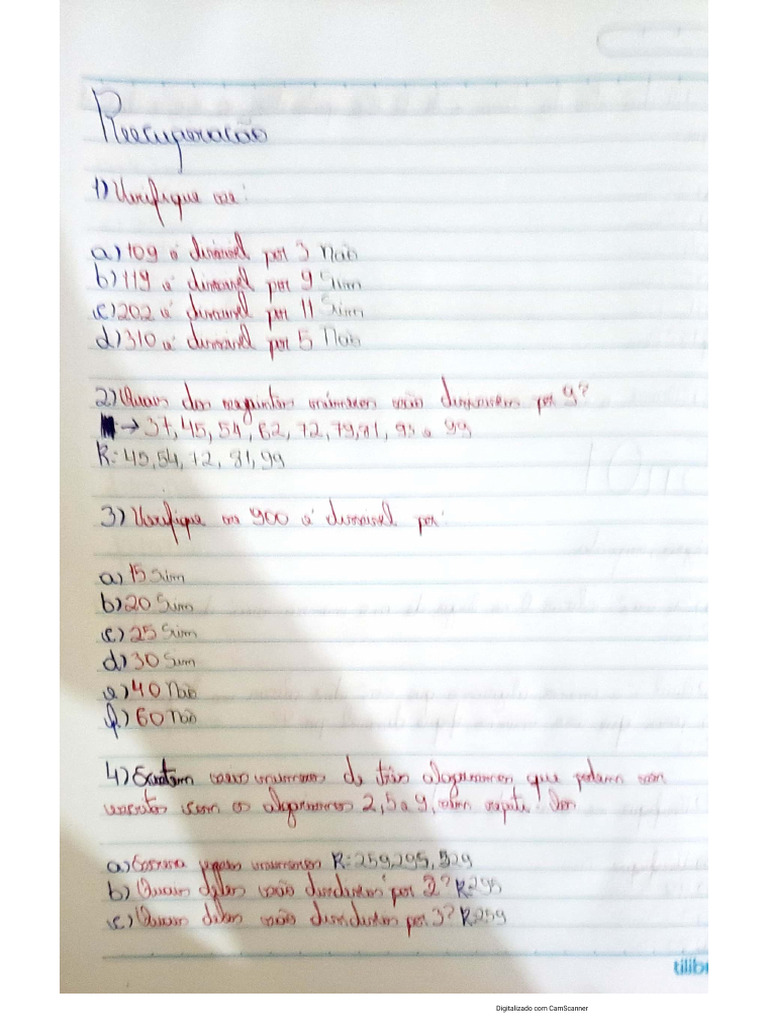 Recuperação
1) Verifique se:
a) 109 é divisível por 3 Não
b) 119 é divisível por 9 Sim
c) 202 é divisível por 11 Sim
d) 310 é divisível por 5 Não
2) Quais dos seguintes números são divisíveis por 9?
→ 37, 45, 54, 62, 72, 79, 81, 93 e 99
R: 45, 54, 72, 81, 99
3) Verifique se 900 é divisível por:
a) 15 Sim
b) 20 Sim
c) 25 Sim
d) 30 Sim
e) 40 Não
f) 60 Não
4) Existem seis números de três algarismos que podem ser
escritos com os algarismos 2, 5 e 9, sem repeti-los
a) Escreva esses números R: 259, 295, 529
b) Quais deles são divisíveis por 2? R 295
c) Quais deles são divisíveis por 3? R 259
tilibr
Digitalizado com CamScanner